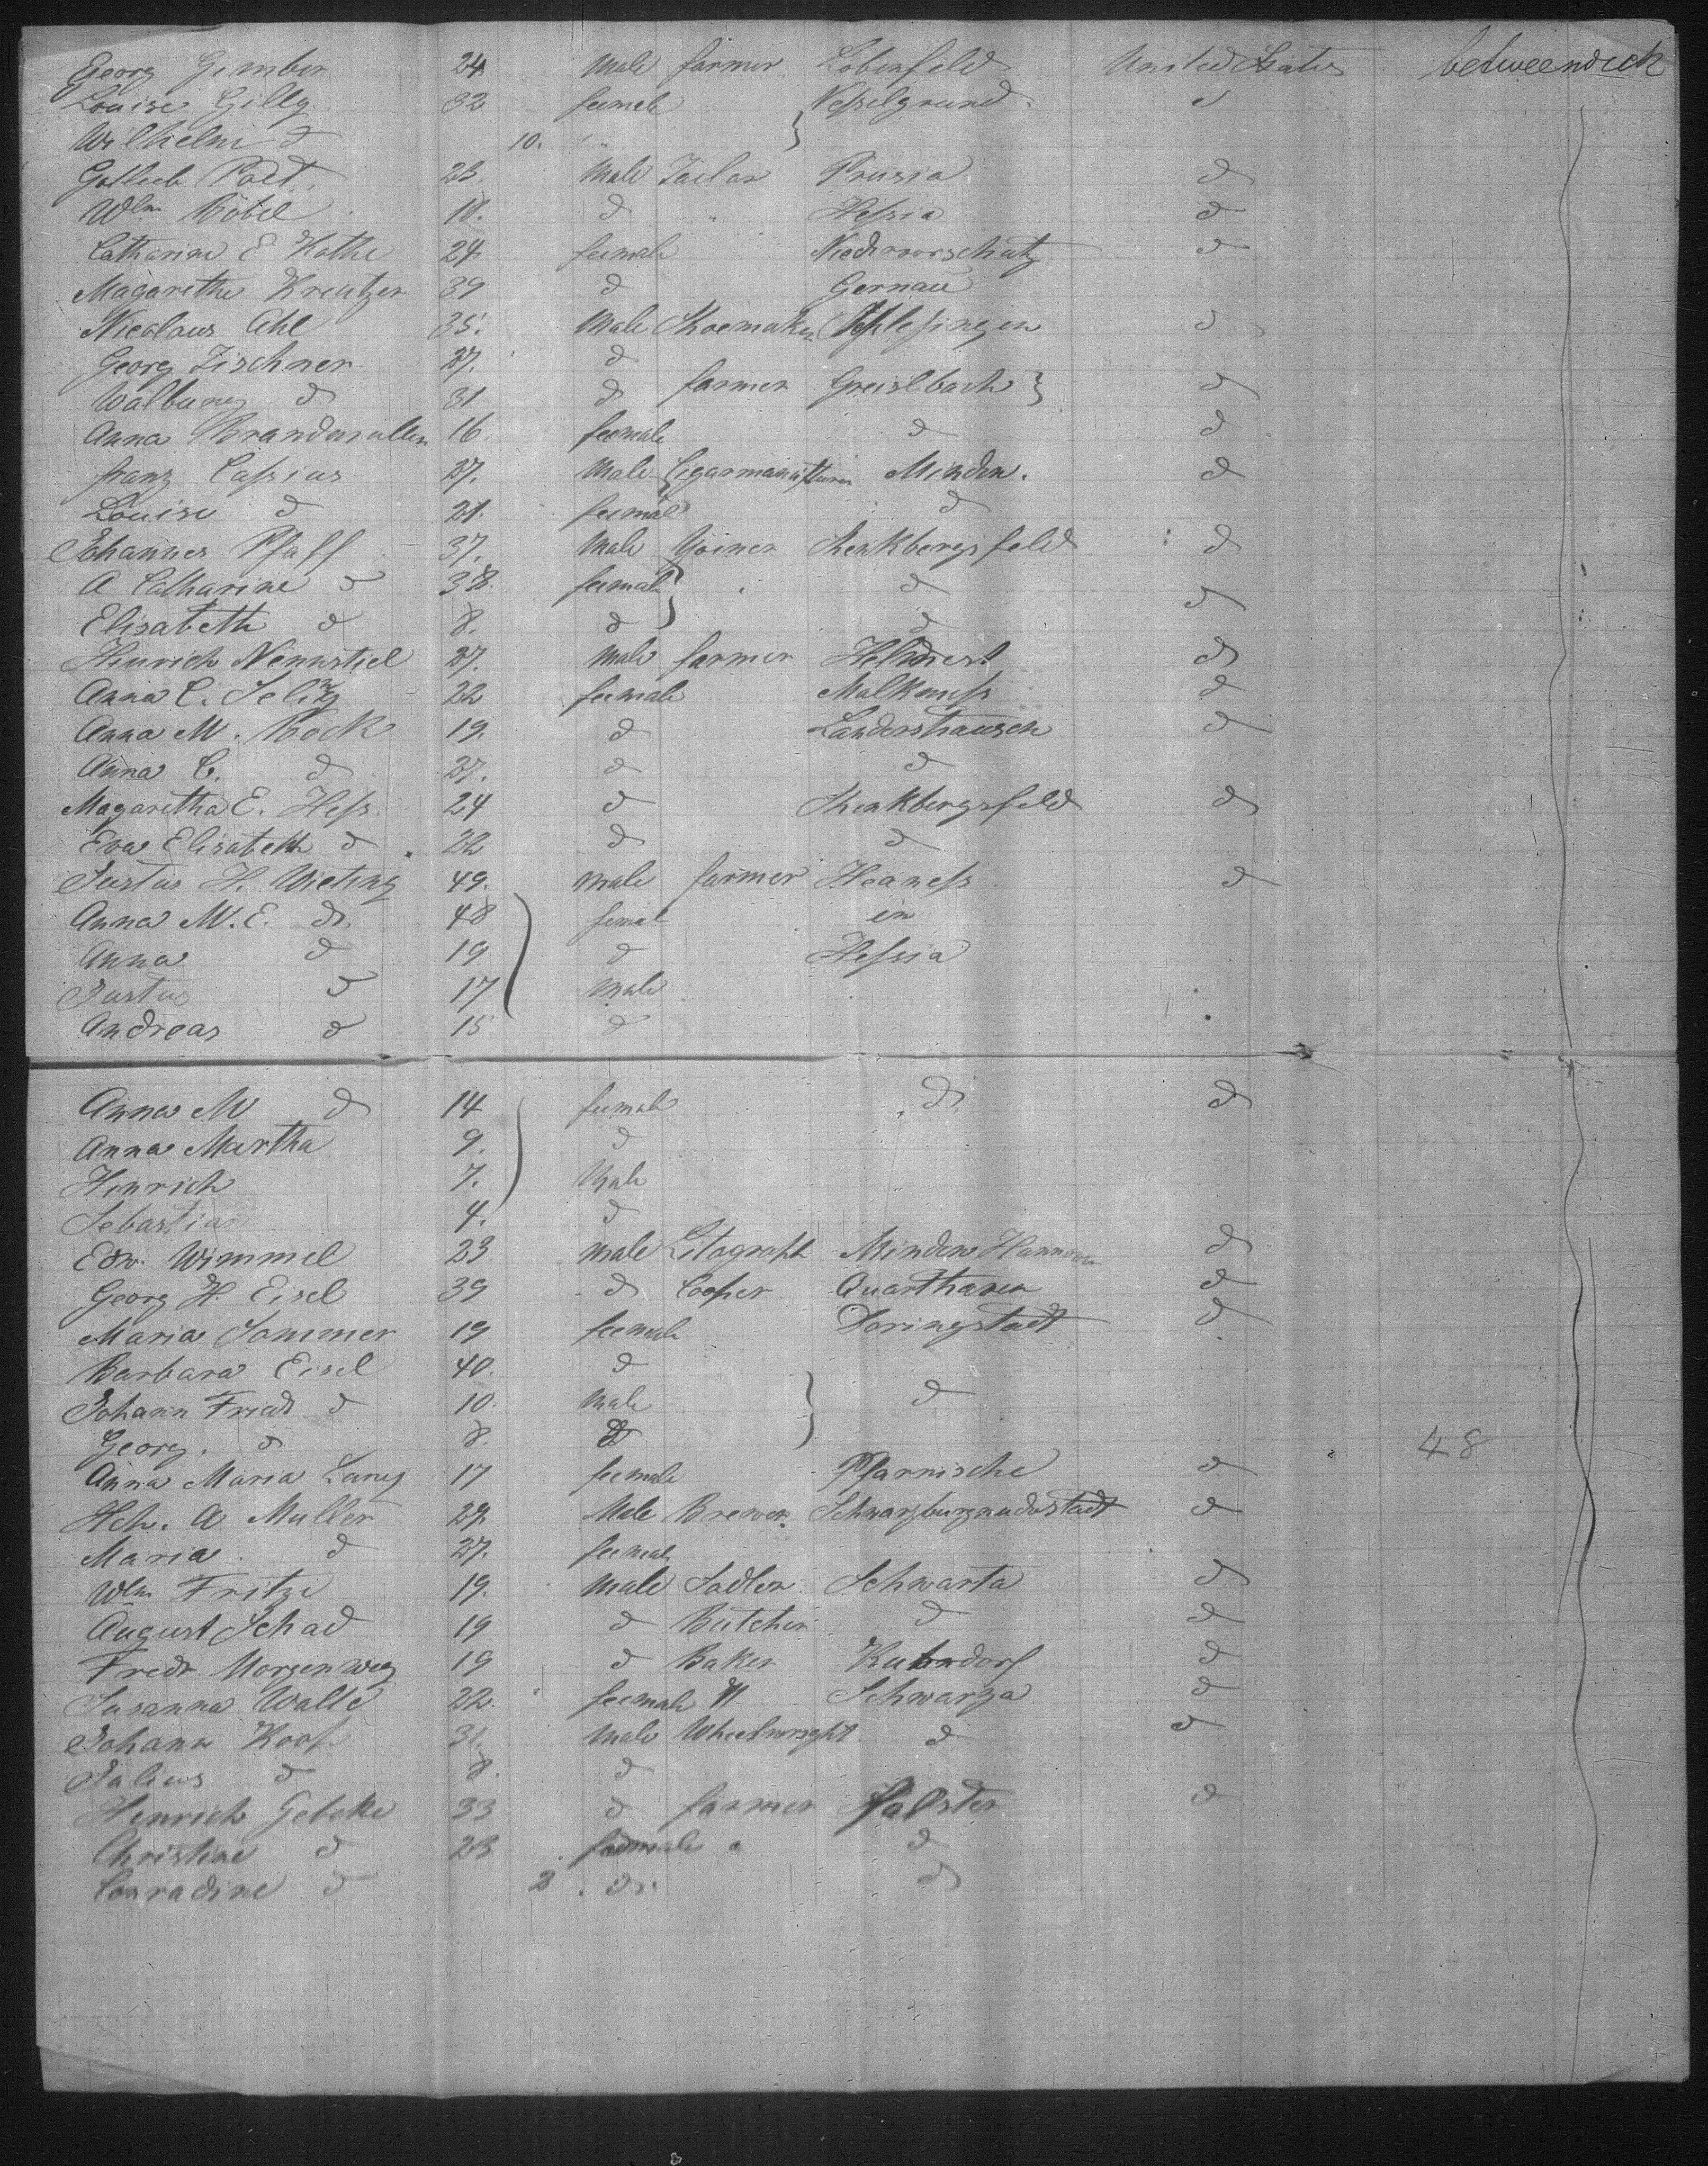 Georg Gimber 24 Male farmer Lobenfeld United States betweendeck
Louise Gilly 32 feemale Nesselgrund d
Wilhelm d 10. "
Gotlieb Pald 23. Male Tailor Prusia d
Wlm Böbel 18. d " Hessia d
Catharine E Kothe 24 feemale Niedervorschutz d
Magarethe Kreutzer 39 d Gernau
Nicolaus Ahl 35. Male Shoemaker d
Georg Tischner 27. d
Walburg d 31 d farmer Greislbach d
Anna Brandmuller 16. feemale d d
franz Cassius 27. Male Minden. d
Louise d 21. feemale d
Johannes Pfaff 37. Male Yoiner Shenkbergsfeld d
A Catharine d 38. feemale d d
Elisabeth d 8. d d
Hinrich Nennstiel 27. Male farmer d
Anna C. Seling 22 feemale Malkmess d
Anna M. Bock 19. d Landershausen d
Anna C. d 27. d d
Magaretha E. Hess 24 d Shenkbergsfeld d
Eva Elisabeth d 22 d d
Justus H. Wieting 49. male farmer Heaness d
Anna M. E. d. 48 femal in
Anna d 19 d Hessia
Justus d 17 male
Andreas d 15 d
Anna M d 14 feemale d d
Anna Martha 9. d
Hinrich 7. Male
Sebastian 4. d
Edw. Wimmel 23 male Litograph Minden Hannover d
Georg H. Eisel 39 d Cooper d
Maria Sommer 19 feemale Doringstadt d
Barbara Eisel 40. d
Johann Friedr d 10. Male d
Georg. d 8. d 48
Anna Maria Lang 17 feemale d
Hch. A Muller 27. Male Brewer. Schwarzburgrudostadt d
Maria d 27. feemale
Wlm Fritze 19. Male Sadler Schwarta d
August Schad 19 d Butcher d d
Fredr Morgenweg 19 d Baker d
Susanna Walte 22. feemale Schwarza d
Johann Koof 31. Male Wheelwright d d
Julius d 8. d
Henrich Gebeke 33 d farmer d
Christine d 23 feemale d
Conradine d 3 d. d